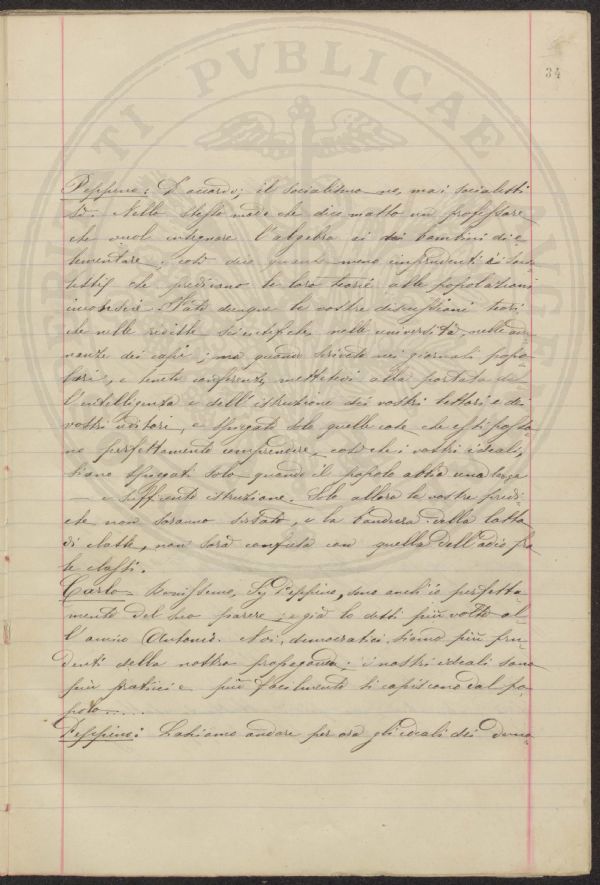 34
Peppino: D'accordo; il socialismo no, ma i socialisti
sì. Nello stesso modo che dico matto un professore
che vuol insegnare l'algebra ai bambini di e-
lementare, così dico meno imprudenti i
che predicano le loro teorie alle popolazioni
Fate dunque le vostre discussioni teori
che nelle riviste scientifiche, nelle università, nelle adu
nanze dei capi; ma quando scrivete nei giornali popo-
lari, e tenete conferenze, mettetevi alla portata del
l'intelligenza e dell'istruzione dei vostri lettori, e dei
vostri uditori, e spiegate solo quelle cose che essi posso
no perfettamente comprendere, così che i vostri ideali,
siano spiegati solo quando il popolo abbia una larga
e sufficiente istruzione. Solo allora le vostre predi
che non saranno e la bandiera della lotta
di classe, non sarà confusa con quella dell'odio fra
le classi.
Carlo Benissimo, Sig Peppino, sono anch'io perfetta
mente del suo parere; e già lo dissi più volte al-
l'amico Antonio. Noi, democratici siamo più pru
denti della nostra propaganda: i nostri ideali sono
più pratici e più facilmente si capiscono dal po-
polo.....
Peppino: Lasciamo andare per ora gli ideali dei demo-
PVBLICAE